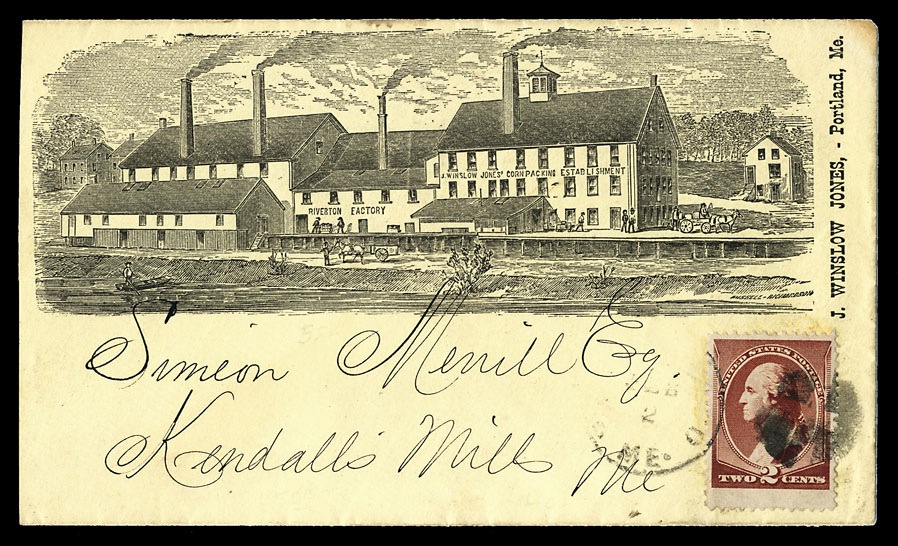 J. WINSLOW JONES, - Portland, Me.
J. WINSLOW JONES' CORN PACKING ESTABLISHMENT
RIVERTON FACTORY
RUSSELL-RICHARDSON
Simeon Merrill Esq.
Kendalls Mills Me
2
ME.
UNITED STATES POSTAGE
2
TWO CENTS